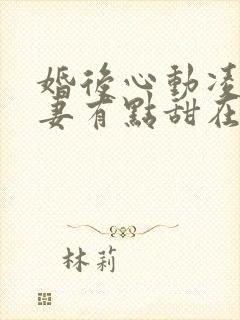 婚後心動凌
妻有點甜在
林莉